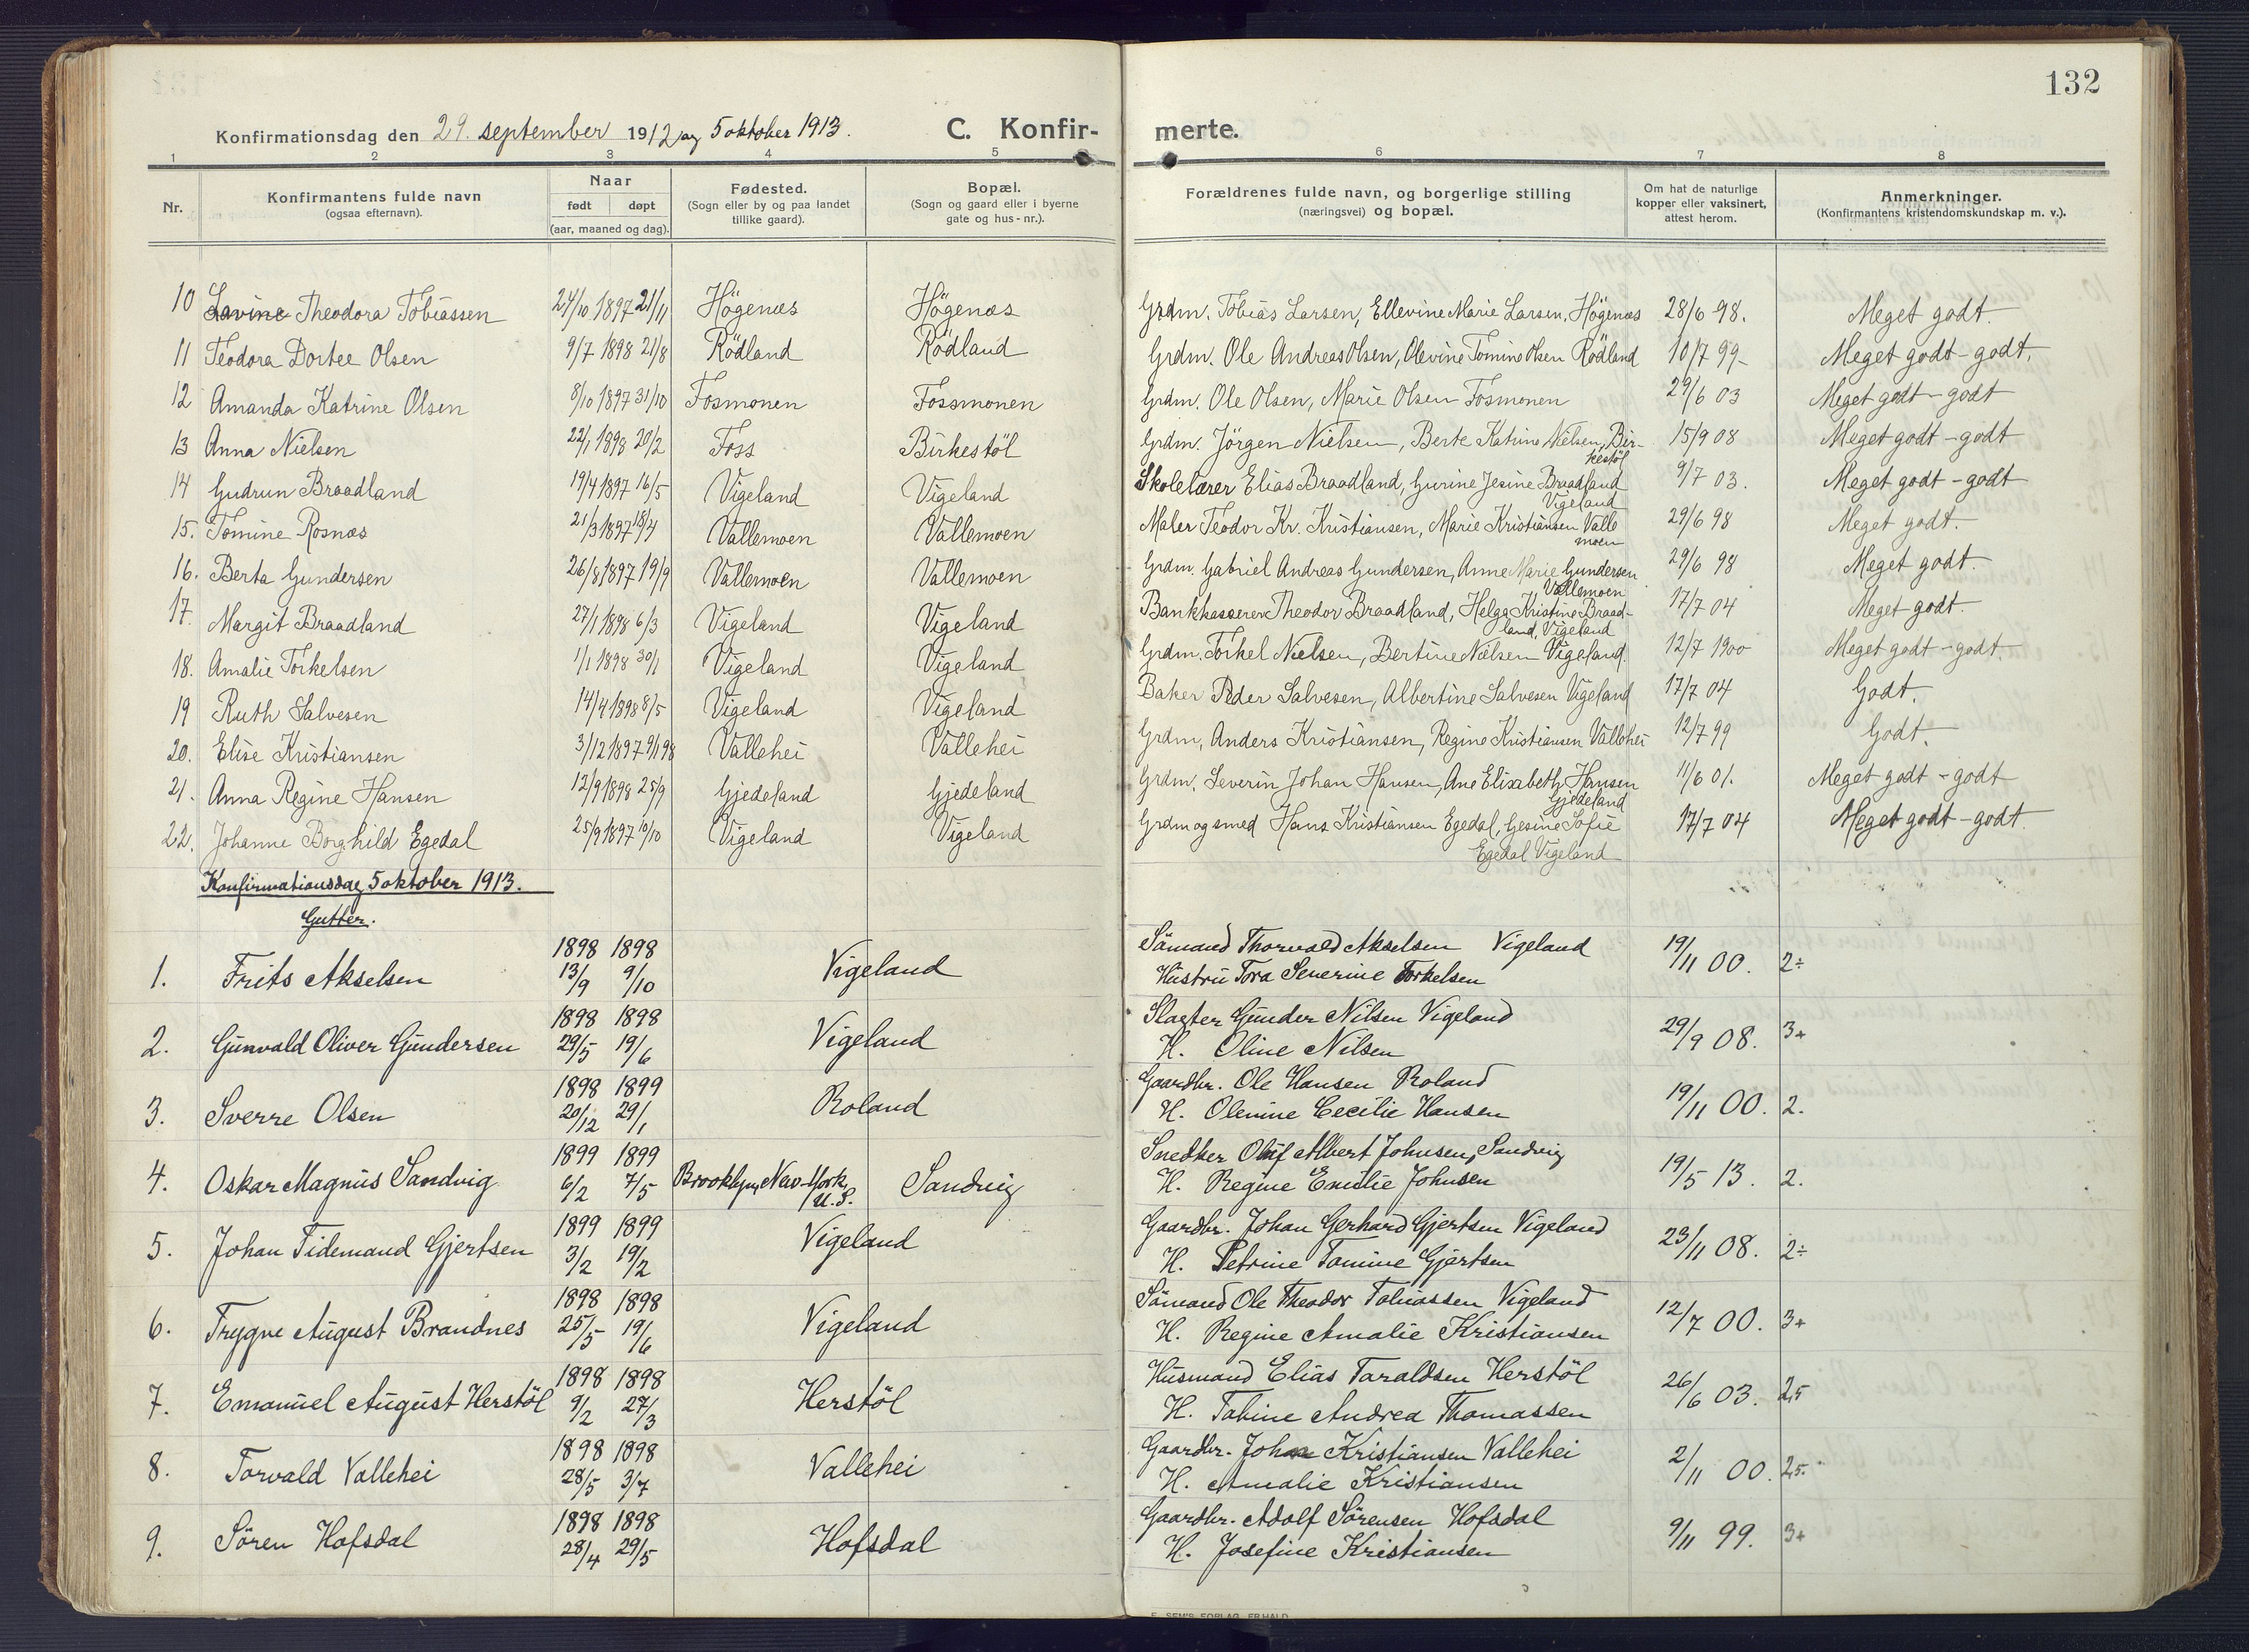 132
Konfirmationsdag den 29. september 1912 og 5 oktober 1913. C. Konfir- merte.
1 2 3 4 5 6 7 8
Nr. Konfirmantens fulde navn (ogsaa efternavn). Naar født døpt (aar, maaned og dag). Fødested. (Sogn eller by og paa landet tillike gaard). Bopæl. (Sogn og gaard eller i byerne gate og hus-nr.). Forældrenes fulde navn, og borgerlige stilling (næringsvei) og bopæl. Om hat de naturlige kopper eller vaksinert, attest herom. Anmerkninger. (Konfirmantens kristendomskundskap m. v.).
10 Lavine Theodora Tobiassen 24/10 1897 21/11 Högenæs Högenæs Grdm. Tobias Larsen, Ellevine Marie Larsen, Högenæs 28/6 98. Meget godt.
11 Teodora Dortee Olsen 9/7 1898 21/8 Rödland Rödland Grdm. Ole Andreas Olsen, Olevine Tomine Olsen Rödland 10/7 99- Meget godt-godt.
12 Amanda Katrine Olsen 8/10 1897 31/10 Fosmonen Fossmonen Grdm. Ole Olsen, Marie Olsen Fosmonen 29/6 03 Meget godt-godt
13 Anna Nielsen 22/1 1898 20/2 Foss Birkestöl Grdm. Jörgen Nielsen, Berte Katrine Nielsen, Bir-
kestöl 15/9 08 Meget godt-godt
14 Gudrun Braadland 19/4 1897 16/5 Vigeland Vigeland Skolelærer Elias Braadland, Gurine Jesine Braadland
Vigeland 9/7 03. Meget godt-godt
15. Tomine Rosnæs 21/3 1897 18/4 Vallemoen Vallemoen Maler Teodor Kr. Kristiansen, Marie Kristiansen Valle
moen 29/6 98 Meget godt.
16. Berta Gundersen 26/8 1897 19/9 Vallemoen Vallemoen Grdm. Gabriel Andreas Gundersen, Anne Marie Gundersen
Vallemoen 29/6 98 Meget godt.
17. Margit Braadland 27/1 1898 6/3 Vigeland Vigeland Bankkasserer Theodor Braadland, Helga Kristine Braad-
land, Vigeland 17/7 04 Meget godt.
18. Amalie Torkelsen 1/1 1898 30/1 Vigeland Vigeland Grdm. Torkel Nielsen, Bertine Nielsen Vigeland. 12/7 1900 Meget godt-godt
19 Ruth Salvesen 14/4 1898 8/5 Vigeland Vigeland Baker Peder Salvesen, Albertine Salvesen Vigeland 17/7 04 Godt.
20. Elise Kristiansen 3/12 1897 9/1 98 Vallehei Vallehei Grdm, Anders Kristiansen, Regine Kristiansen Vallehei 12/7 99 Godt.
21. Anna Regine Hansen 12/9 1898 25/9 Gjedeland Gjedeland Grdm. Severin Johan Hansen, Ane Elisabeth Hansen
Gjedeland 11/6 01. Meget godt-godt
22. Johanne Borghild Egedal 25/9 1897 10/10 Vigeland Vigeland Grdm og smed Hans Kristiansen Egedal, Gesine Sofie
Egedal Vigeland 17/7 04 Meget godt-godt.
Konfirmationsdag 5 oktober 1913.
Gutter.
1. Frits Akselsen 1898 13/9 1898 9/10 Vigeland Sömand Thorvald Akselsen Vigeland
Hustru Tora Severine Torkelsen 19/11 00. 2÷
2. Gunvald Oliver Gundersen 1898 29/5 1898 19/6 Vigeland Slagter Gunder Nilsen Vigeland
H. Oline Nilsen 29/9 08. 3+
3. Sverre Olsen 1898 20/12 1899 29/1 Roland Gaardbr. Ole Hansen Roland
H. Olenine Cecilie Hansen 19/11 00. 2.
4. Oskar Magnus Sandvig 1899 6/2 1899 7/5 Brooklyn, New-York, U.S. Sandvig Snedker Oluf Albert Johnsen, Sandvig
H. Regine Emilie Johnsen 19/5 13. 2.
5. Johan Tidemand Gjertsen 1899 3/2 1899 19/2 Vigeland Gaardbr. Johan Gerhard Gjertsen Vigeland
H. Petrine Tomine Gjertsen 23/11 08. 2÷
6. Trygve August Brandnes 1898 25/5 1898 19/6 Vigeland Sömand Ole Theodor Tobiassen Vigeland
H. Regine Amalie Kristiansen 12/7 00. 3+
7. Emanuel August Herstöl 1898 9/2 1898 27/3 Herstöl Husmand Elias Taraldsen Herstöl
H. Tabine Andrea Thomassen 26/6 03. 2,5
8. Torvald Vallehei 1898 28/5 1898 3/7 Vallehei Gaardbr. Johan Kristiansen Vallehei
H. Amalie Kristiansen 2/11 00. 2,5.
9. Sören Hofsdal 1898 28/4 1898 29/5 Hofsdal Gaardbr. Adolf Sörensen Hofsdal
H. Josefine Kristiansen 9/11 99. 3+